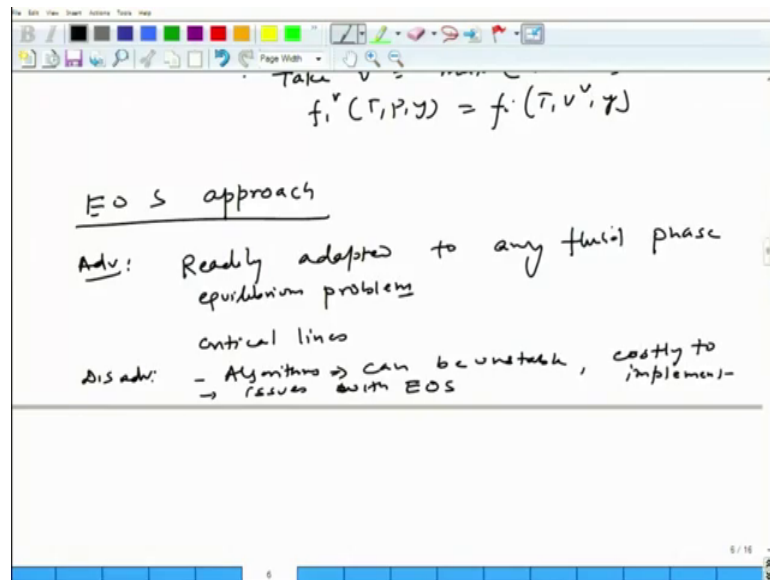 File Edit View Insert Actions Tools Help
B I
Page Width
Take v
fᵢᵛ (T, P, y) = fᵢ (T, vᵛ, y)
EOS approach
Adv: Readily adapted to any fluid phase
equilibrium problem
critical lines
Disadv: - Algorithms → can be unstable, costly to
implement
→ issues with EOS
6 / 16
6